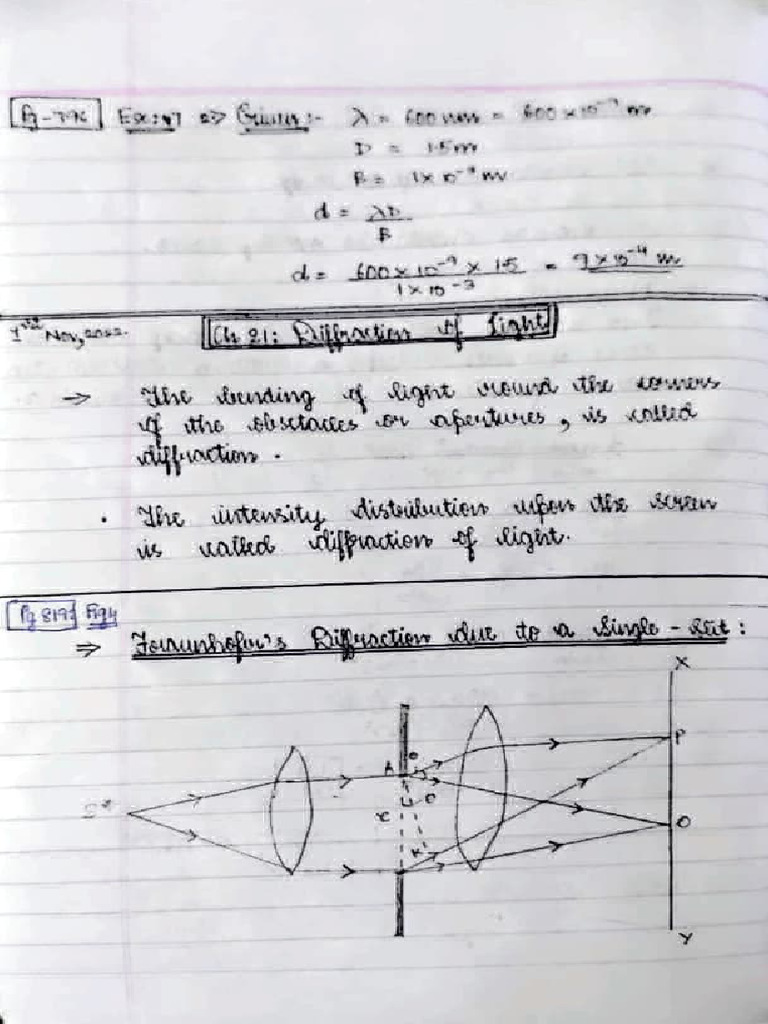 Ex: 17 => Given:- λ = 600 nm = 600 × 10⁻⁹ m
D = 1.5 m
β = 1 × 10⁻³ m
d = λD / β
d = 600 × 10⁻⁹ × 1.5 / 1 × 10⁻³ = 9 × 10⁻⁴ m
Nov, 2022.
Ch 21: Diffraction of Light
→ The bending of light round the corners
of the obstacles or apertures, is called
diffraction.
• The intensity distribution upon the screen
is called diffraction of light.
Pg 819
⇒ Fraunhofer's Diffraction due to a Single-Slit:
X
P
A
θ
θ
S*
x
O
K
Y